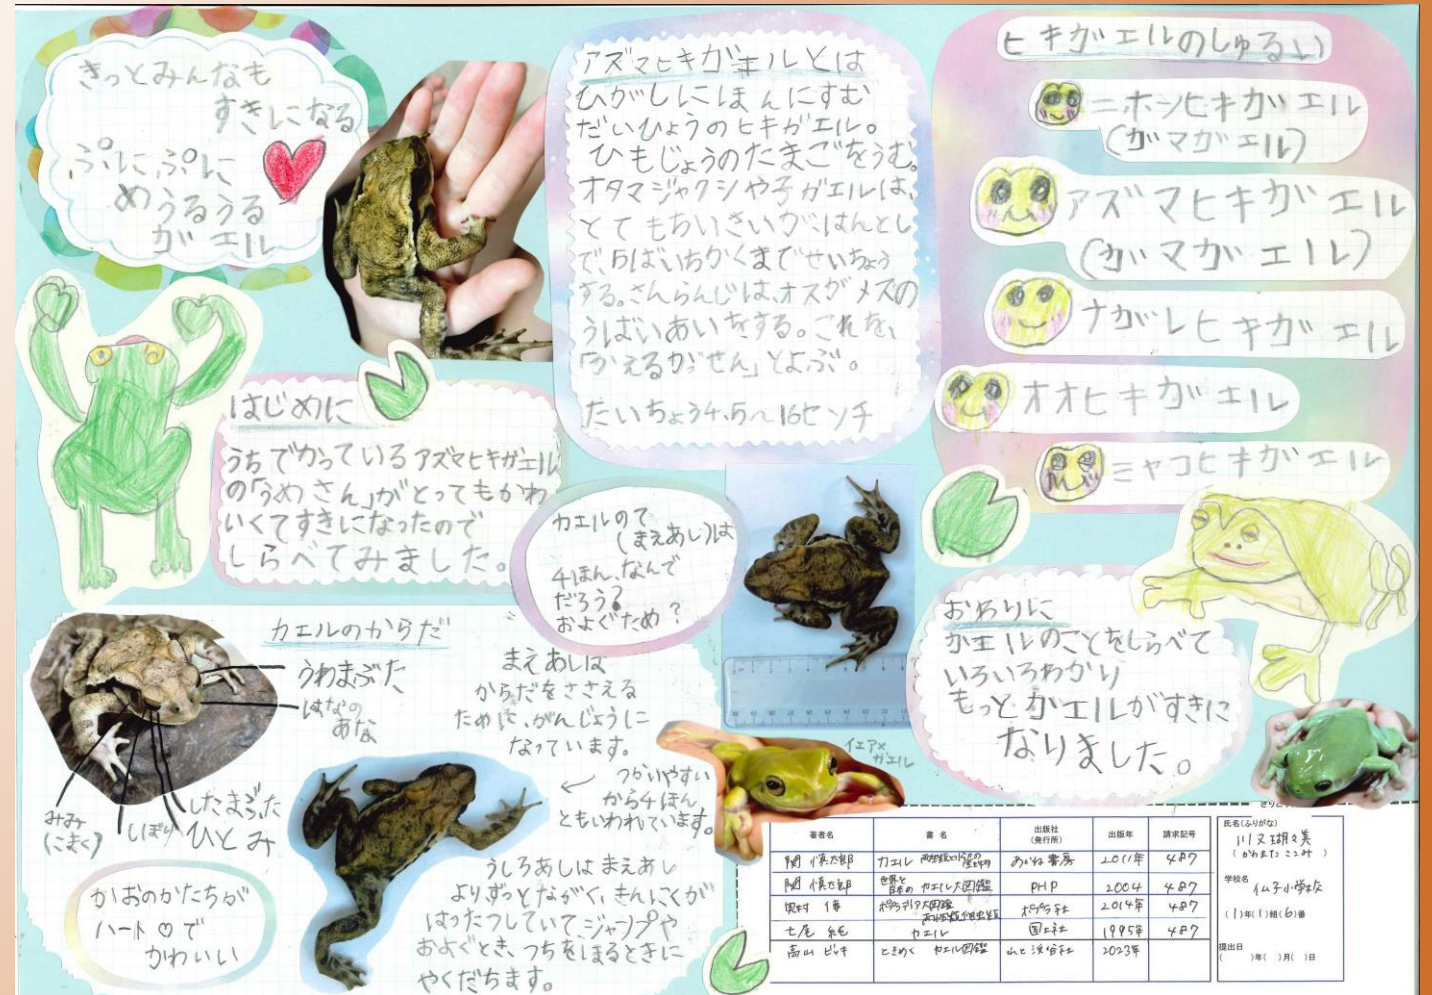 きっとみんなも
すきになる
ぷにぷに
めうるうる
ガエル
はじめに
うちでかっているアズマヒキガエル
の「うめさん」がとってもかわ
いくてすきになったので
しらべてみました。
アズマヒキガエルとは
ひがしにほんにすむ
だいひょうのヒキガエル。
ひもじょうのたまごをうむ。
オタマジャクシや子ガエルは、
とてもちいさいが、はんとし
で、5ばいちかくまでせいちょう
する。さんらんじは、オスがメスの
うばいあいをする。これを、
「かえるがっせん」とよぶ。
たいちょう4.5〜16センチ
ヒキガエルのしゅるい
ニホンヒキガエル
(ガマガエル)
アズマヒキガエル
(ガマガエル)
ナガレヒキガエル
オオヒキガエル
ミヤコヒキガエル
カエルのて
(まえあし)は
4ほん、なんで
だろう?
およぐため?
おわりに
カエルのことをしらべて
いろいろわかり
もっとガエルがすきに
なりました。
カエルのからだ
うわまぶた
はなの
あな
したまぶた
ひとみ
みみ
(こまく)
まえあしは
からだをささえる
ために、がんじょうに
なっています。
← つかいやすい
から4ほん
ともいわれています。
イエアメ
ガエル
うしろあしはまえあし
よりずっとながく、きんにくが
はったつしていて、ジャンプや
およぐとき、つちをほるときに
やくだちます。
かおのかたちが
ハート♡で
かわいい
著者名 書名 出版社(発行所) 出版年 請求記号
関 慎太郎 カエル あかね書房 2011年 487
関 慎太郎 世界と日本のカエル大図鑑 PHP 2004 487
ポプラ社 2014年 487
七尾 純 カエル 国土社 1995年 487
高山 ビッキ ときめくカエル図鑑 山と渓谷社 2023年
氏名(ふりがな)
川又瑚々美
(かわまた ここみ)
学校名
仏子小学校
(1)年(1)組(6)番
提出日
( )年( )月( )日